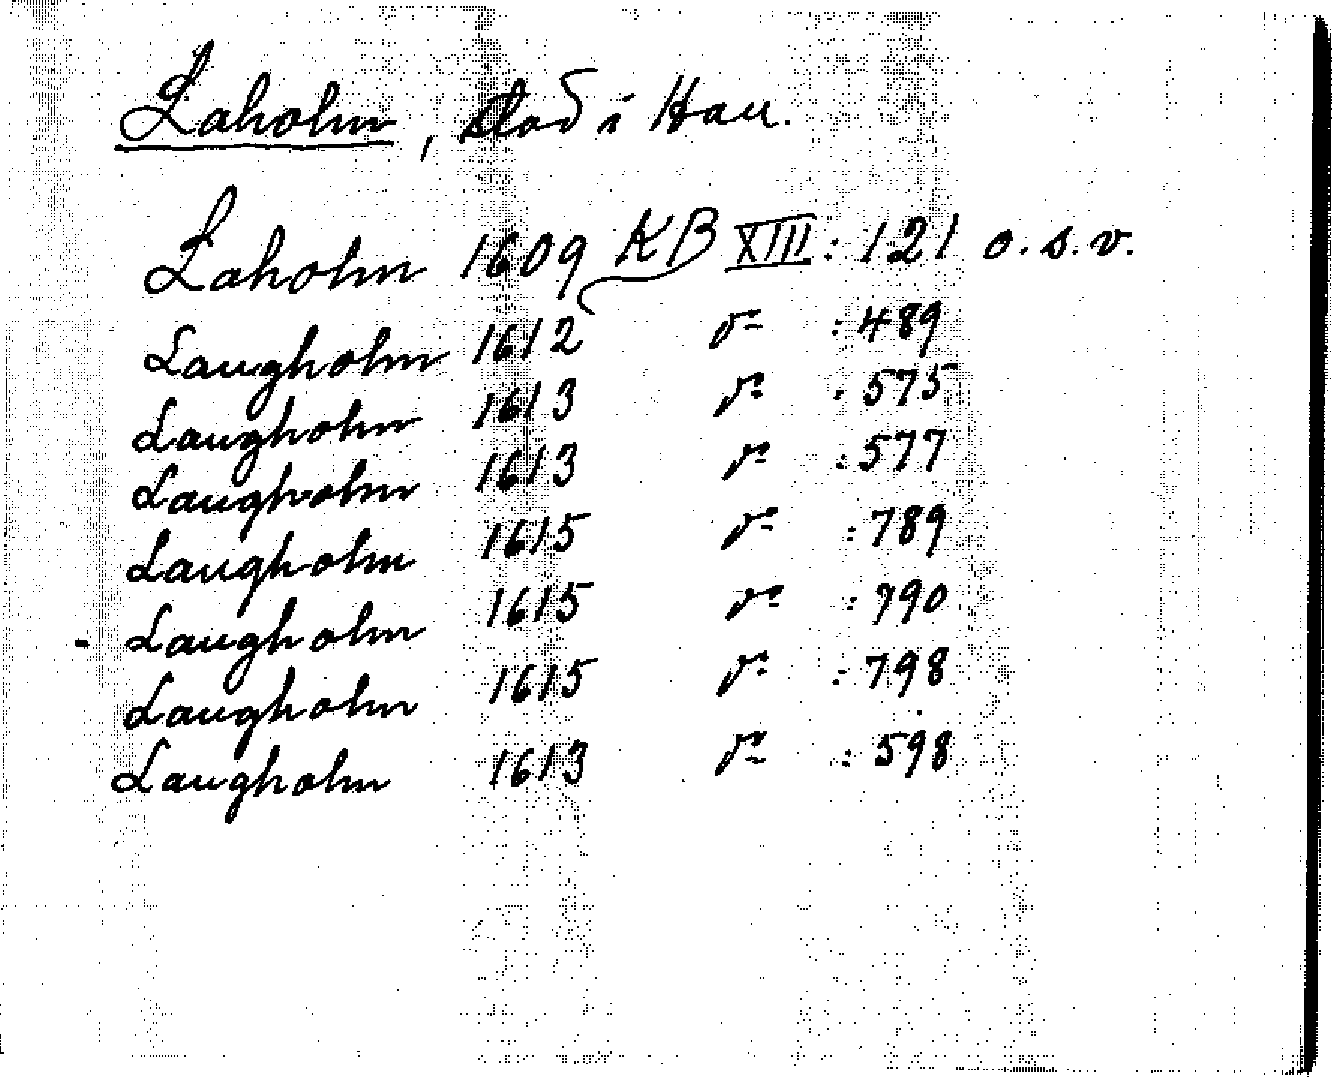 Laholm, stad i Hall.
Laholm 1609 KB XIII: 121 o.s.v.
Laugholm 1612 d:o :489
Laugholm 1613 d:o :575
Laugholm 1613 d:o :577
Laugholm 1615 d:o :789
- Laugholm 1615 d:o :790
Laugholm 1615 d:o :798
Laugholm 1613 d:o :598